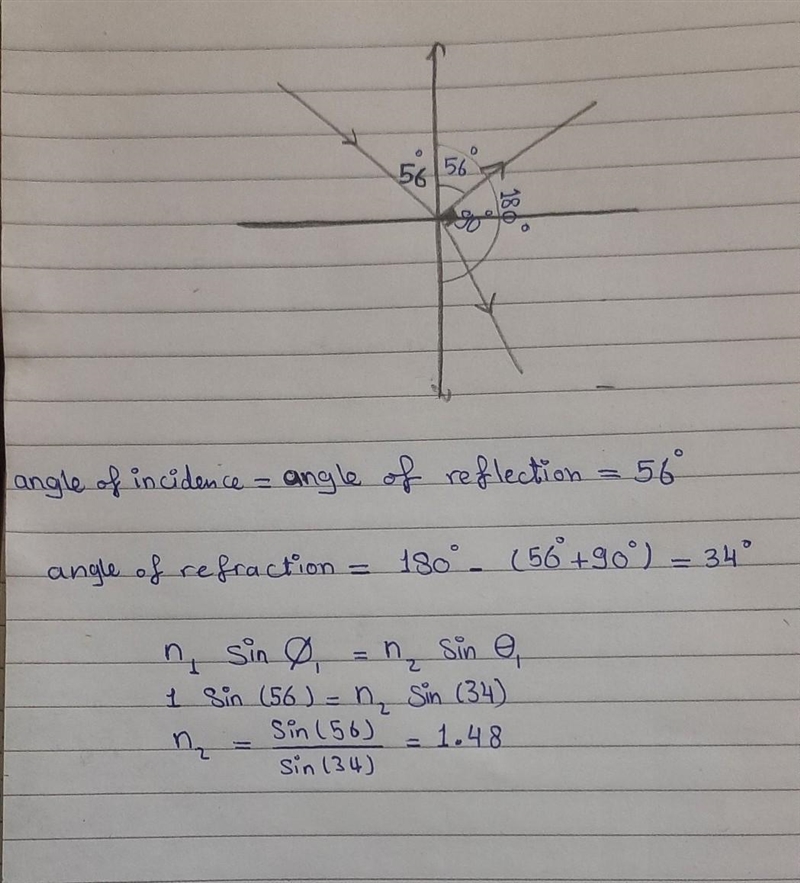 56° 56°
180°
90°
angle of incidence = angle of reflection = 56°
angle of refraction = 180° - (56° + 90°) = 34°
n₁ sin Ø₁ = n₂ sin θ₁
1 sin (56) = n₂ sin (34)
n₂ = sin(56) / sin(34) = 1.48